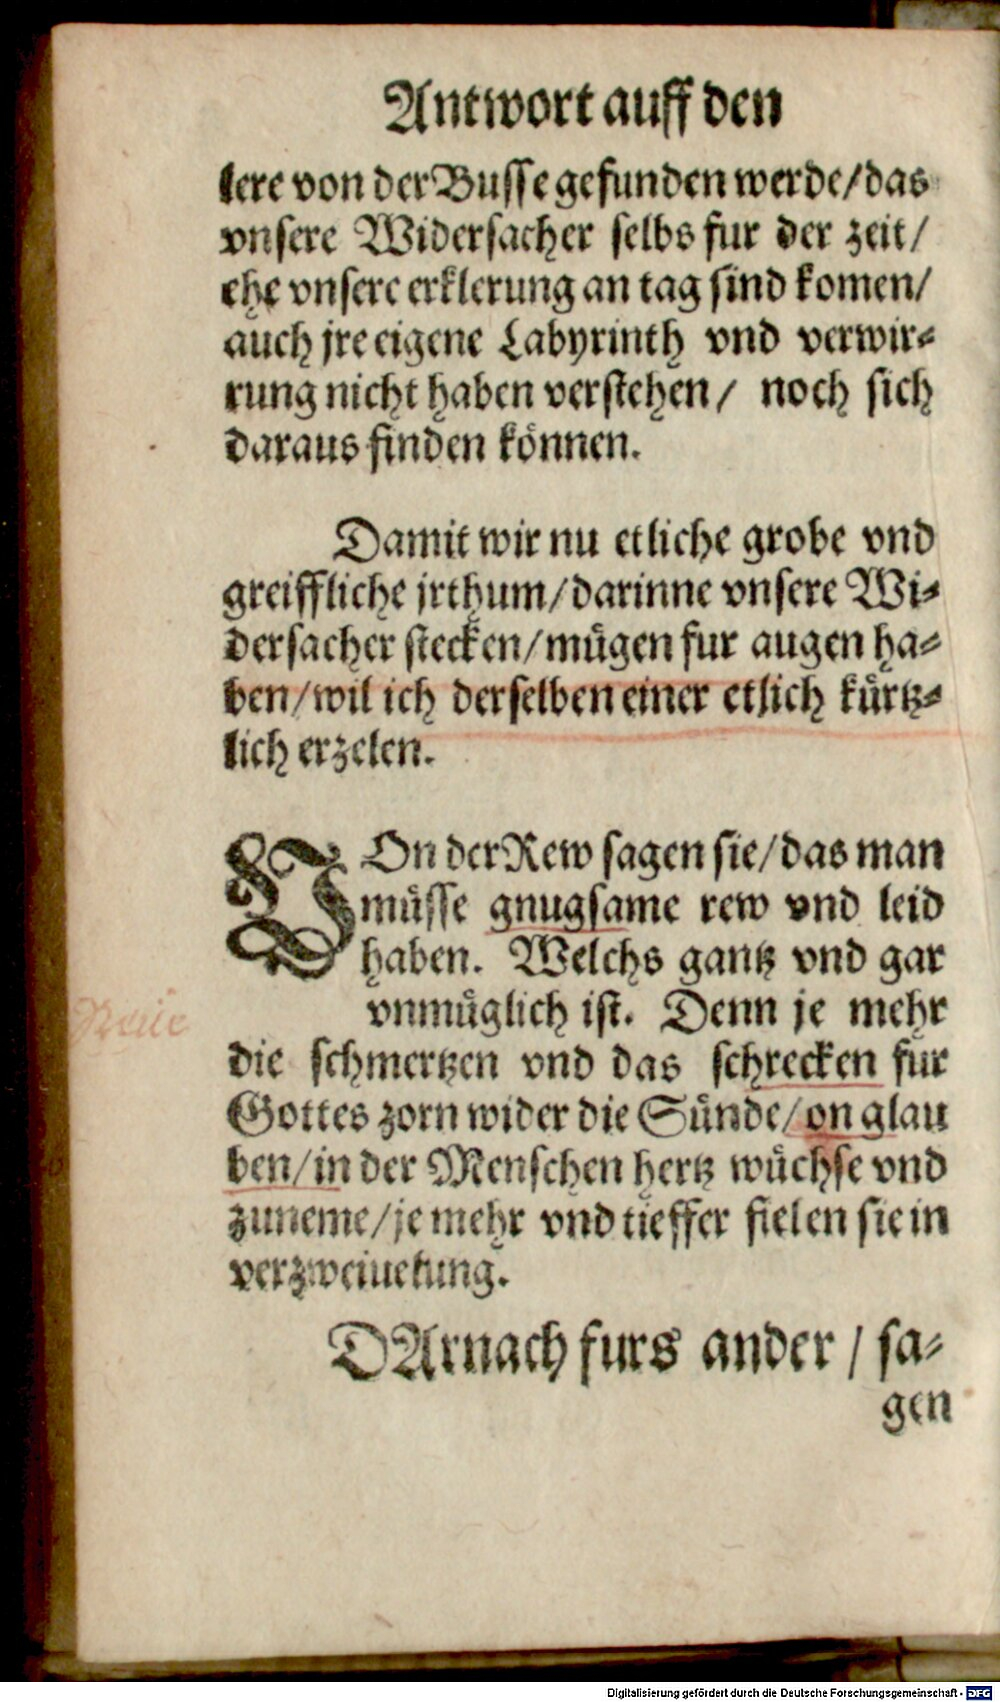 Antwort auff den
lere von der Busse gefunden werde/das
vnsere Widersacher selbs fur der zeit/
ehe vnsere erklerung an tag sind komen/
auch jre eigene Labyrinth vnd verwir-
rung nicht haben verstehen/ noch sich
daraus finden können.
Damit wir nu etliche grobe vnd
greiffliche jrthum/darinne vnsere Wi-
dersacher stecken/mügen fur augen ha-
ben/wil ich derselben einer etlich kürtz-
lich erzelen.
VOn der Rew sagen sie/das man
müsse gnugsame rew vnd leid
haben. Welchs gantz vnd gar
vnmüglich ist. Denn je mehr
Reüe
die schmertzen vnd das schrecken fur
Gottes zorn wider die Sünde/on glau
ben/in der Menschen hertz wüchse vnd
zuneme/je mehr vnd tieffer fielen sie in
verzweiuelung.
DArnach furs ander / sa-
gen
Digitalisierung gefördert durch die Deutsche Forschungsgemeinschaft - DFG